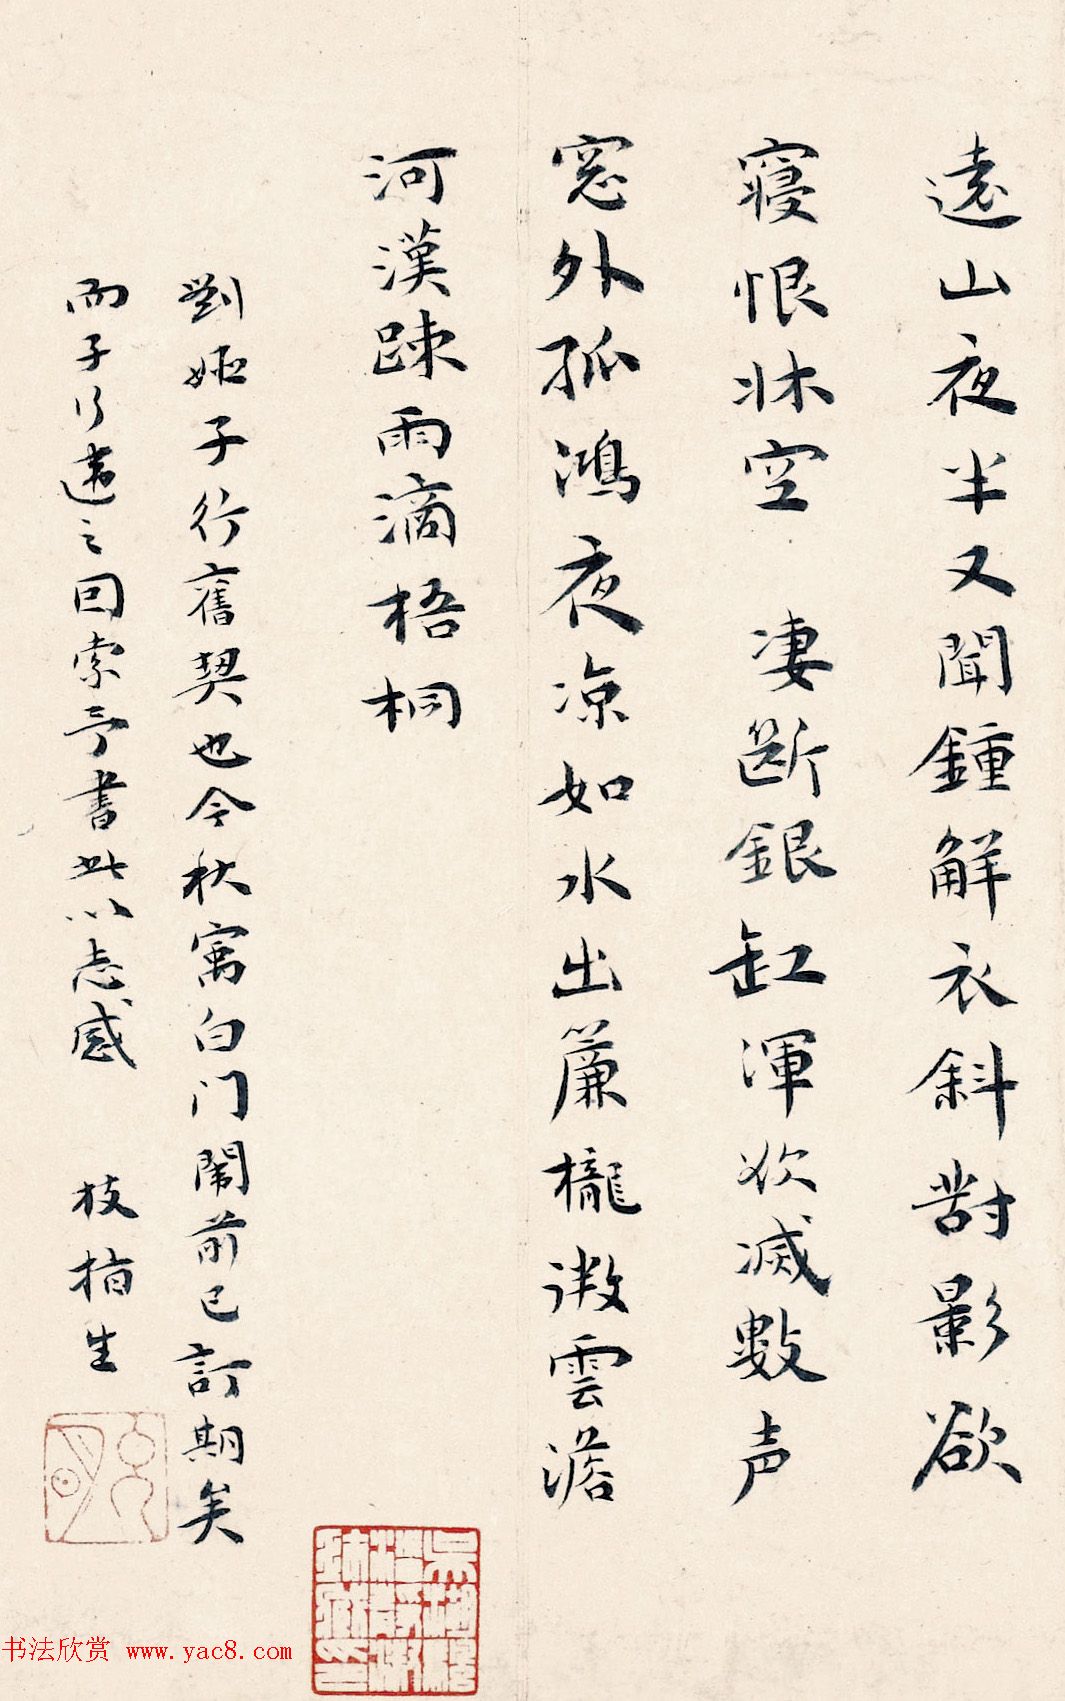 遠山夜半又聞鍾解衣斜對影欲
寢恨牀空 凄斷銀缸渾欲滅數声
窓外孤鴻夜凉如水出簾櫳微雲澹
河漢踈雨滴梧桐
劉姬子行舊契也今秋寓白门鬧前已訂期矣
而子行違之因索予書此以志感 枝指生
书法欣赏 www.yac8.com